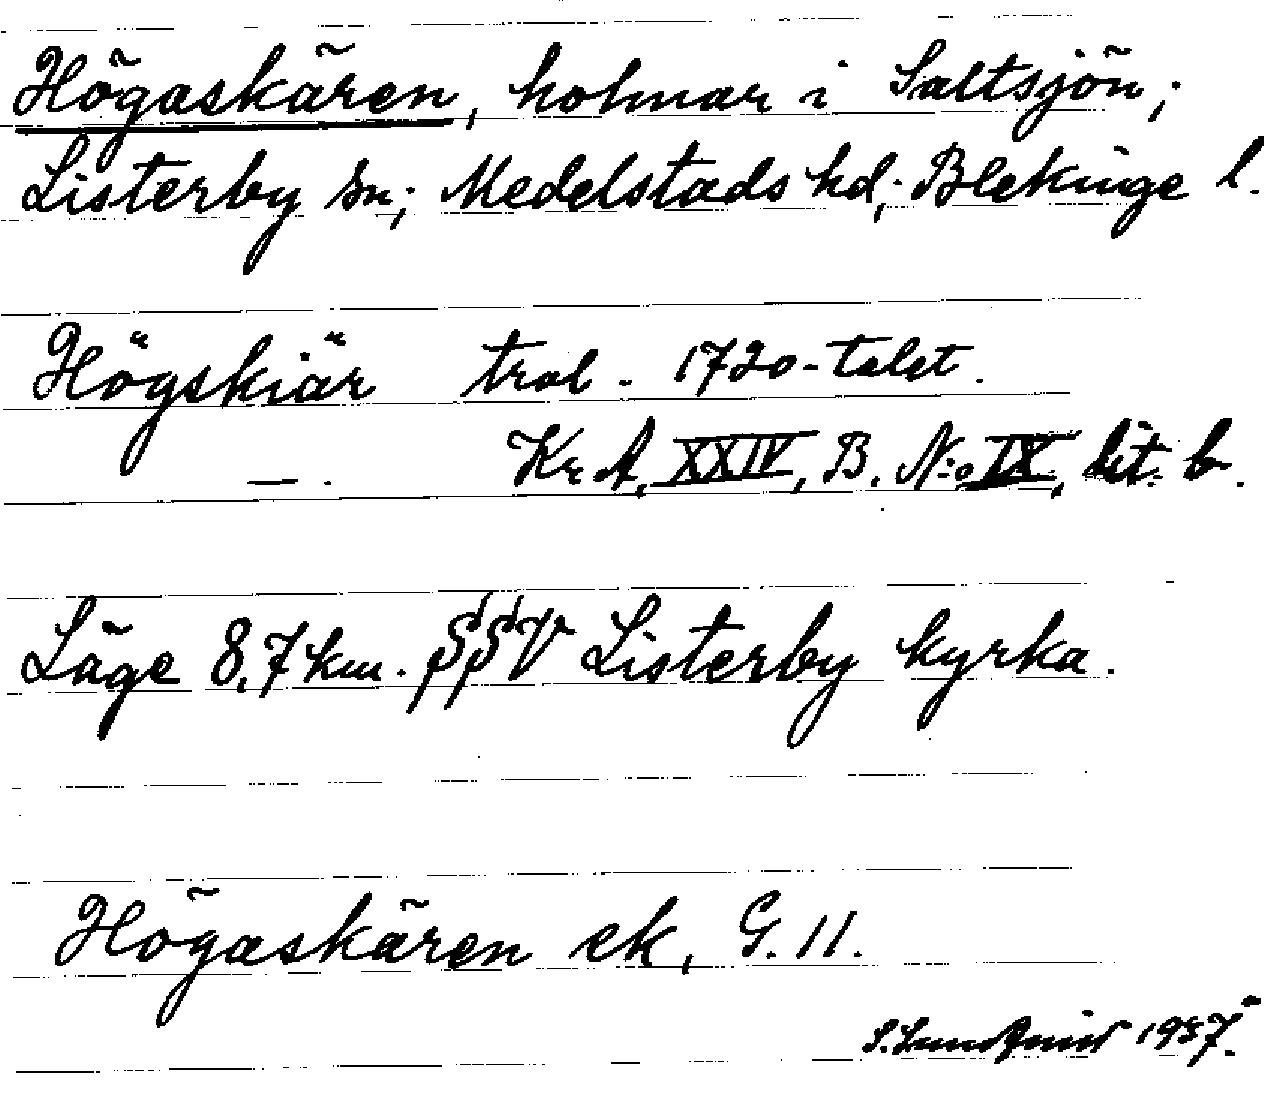 Högaskären, holmar i Saltsjön;
Listerby sn; Medelstads hd; Blekinge l.
Högskiär trol. 1720-talet.
— . Kr A, XXIV, B. N:o IX, lit. b.
Läge 8,7 km. SSV Listerby kyrka.
Högaskären ek, G. 11.
S. Lundqvist 1937.